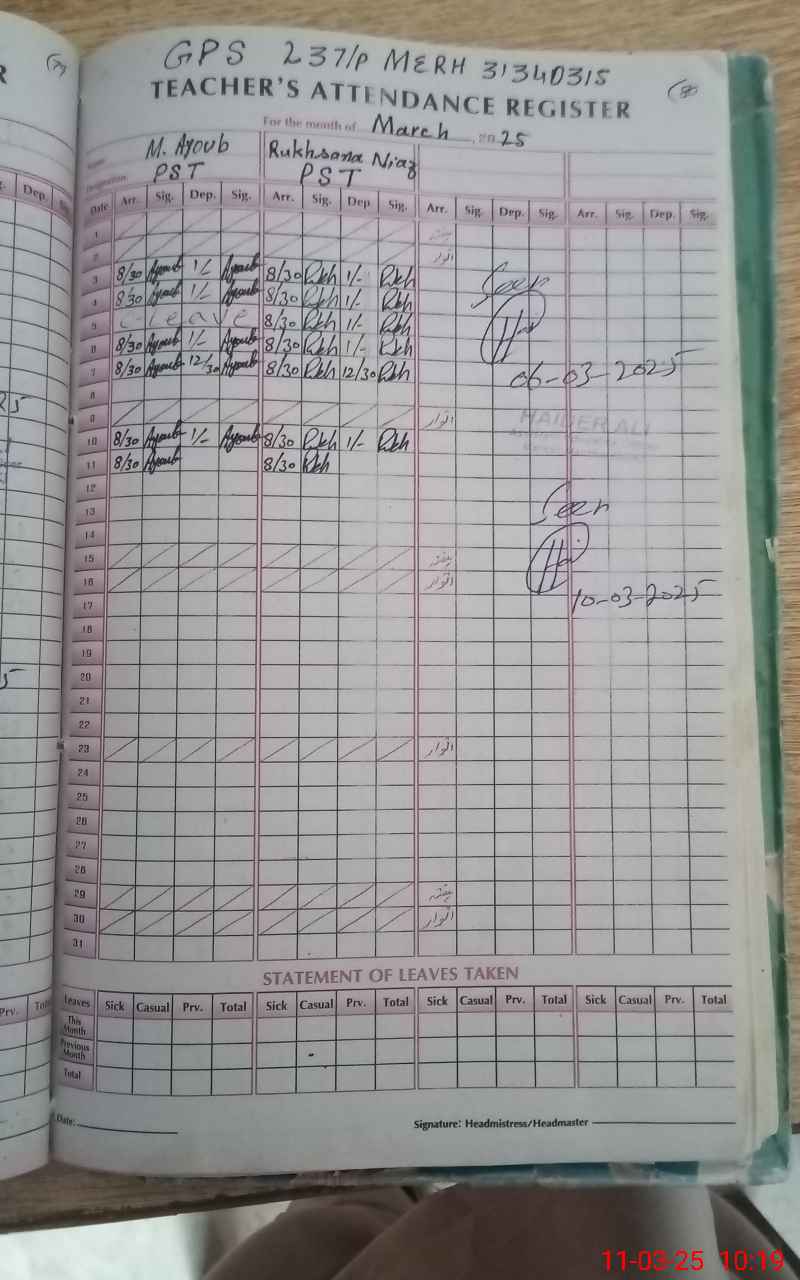 GPS 237/P MERH 31340315
TEACHER'S ATTENDANCE REGISTER
For the month of March 2025
Name M. Ayoub Rukhsana Niaz
Designation PST PST
Date Arr. Sig. Dep. Sig. Arr. Sig. Dep Sig. Arr. Sig. Dep. Sig. Arr. Sig. Dep. Sig.
1 ہفتہ
2 اتوار
3 8/30 Ayoub 1/- Ayoub 8/30 Rkh 1/- Rkh
4 8/30 Ayoub 1/- Ayoub 8/30 Rkh 1/- Rkh
5 C-leave 8/30 Rkh 1/- Rkh
6 8/30 Ayoub 1/- Ayoub 8/30 Rkh 1/- Rkh
7 8/30 Ayoub 12/30 Ayoub 8/30 Rkh 12/30 Rkh
Seen
06-03-2025
8
9 اتوار
HAIDER ALI
10 8/30 Ayoub 1/- Ayoub 8/30 Rkh 1/- Rkh
11 8/30 Ayoub 8/30 Rkh
12
13
Seen
14
15 ہفتہ
16 اتوار
10-03-2025
17
18
19
20
21
22
23 اتوار
24
25
26
27
28
29 ہفتہ
30 اتوار
31
STATEMENT OF LEAVES TAKEN
Leaves Sick Casual Prv. Total Sick Casual Prv. Total Sick Casual Prv. Total Sick Casual Prv. Total
This Month
Previous Month -
Total
Date:
Signature: Headmistress/Headmaster
11-03-25 10:19